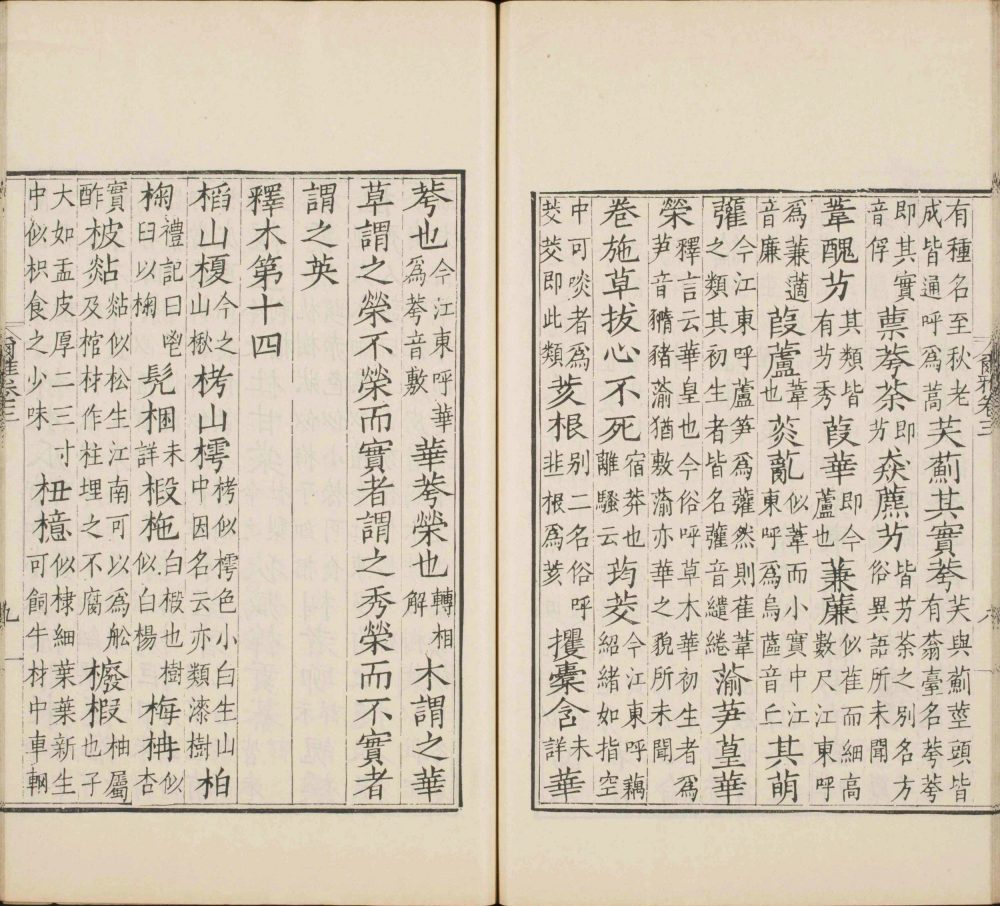 有種名至秋老成皆通呼爲蒿芺薊其實荂芺與薊莖頭皆有蓊臺名荂荂
即其實音俘蔈荂荼即芀猋藨芀皆芀荼之别名方俗異語所未聞
葦醜芀其類皆有芀秀葭華即今蘆也蒹薕似萑而細高數尺江東呼
爲蒹薖音廉葭蘆葦也菼薍似葦而小實中江東呼爲烏蓲音丘其萌
虇今江東呼蘆笋爲虇然則萑葦之類其初生者皆名虇音繾綣蕍芛葟華
榮釋言云華皇也今俗呼草木華初生者爲芛音豨豬蕍猶敷蕍亦華之貌所未聞
卷施草拔心不死宿莽也離騷云荺茭今江東呼藕紹緒如指空
中可啖者爲茭茭即此類荄根别二名俗呼韭根爲荄攫橐含未詳華
荂也今江東呼華爲荂音敷華荂榮也轉相解木謂之華
草謂之榮不榮而實者謂之秀榮而不實者
謂之英
釋木第十四
槄山榎今之山楸栲山樗栲似樗色小白生山中因名云亦類漆樹柏
椈禮記曰鬯臼以椈髡梱未詳椴柂白椴也樹似白楊梅柟似杏
實酢柀煔煔似松生江南可以爲舩及棺材作柱埋之不腐櫠椵柚屬也子
大如盂皮厚二三寸中似枳食之少味杻檍似棣細葉葉新生可飼牛材中車輞
爾雅卷三
九